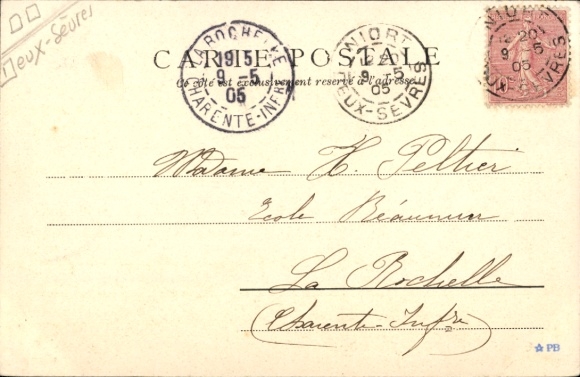 Deux-Sèvres
CARTE POSTALE
Ce côté est exclusivement reservé à l'adresse
LA ROCHELLE
19 15
9 -5
05
CHARENTE-INFRE
NIORT
9 -5
05
DEUX-SEVRES
NIORT
20
9 -5
05
DEUX-SEVRES
Madame H. Peltier
Ecole Réaumur
La Rochelle
(Charente-Infre)
PB